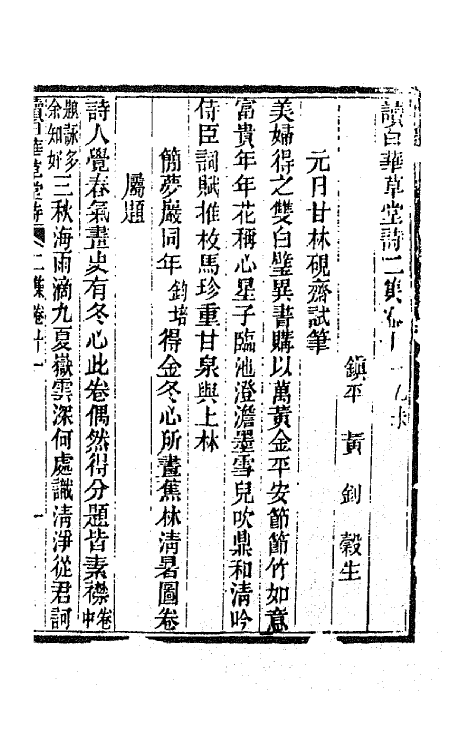 讀白華草堂詩二集卷十一
鎮平 黃釗 穀生
元日甘林硯齋試筆
美婦得之雙白璧異書購以萬黃金平安節節竹如意
富貴年年花稱心星子臨池澄澹墨雪兒吹鼎和清吟
侍臣詞賦推枚馬珍重甘泉與上林
簡夢巖同年鈞培得金冬心所畫蕉林清暑圖卷
屬題
詩人覺春氣畫史有冬心此卷偶然得分題皆素襟卷中
題詠多余知好三秋海雨滴九夏嶽雲深何處識清淨從君訶
讀白華草堂詩 二集卷十一 一